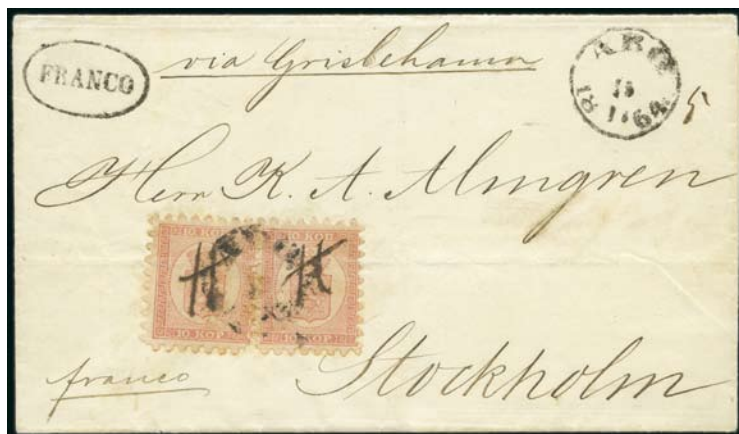 FRANCO
via Grislehamn
ABO
15
18 11 64
5
Herr K. A. Almgren
10 KOP 10 KOP
10 KOP 10 KOP
Stockholm
franco